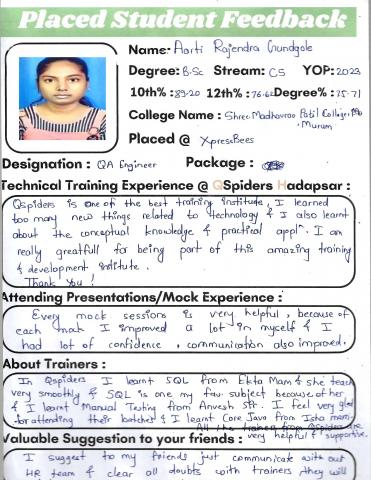 Placed Student Feedback
Name: Aarti Rajendra Gundgole
Degree: B.Sc Stream: CS YOP: 2023
10th% : 89.20 12th% : 76.62 Degree% : 75.71
College Name : Shree Madhavrao Patil College,
Murum
Placed @ XpressBees
Designation : QA Engineer Package :
Technical Training Experience @ QSpiders Hadapsar :
Qspiders is one of the best training institute, I learned
too many new things related to technology & I also learnt
about the conceptual knowledge & practical appln. I am
really greatfull for being part of this amazing training
& development institute.
Thank You !
Attending Presentations/Mock Experience :
Every mock sessions is very helpful, because of
each mock I improved a lot in myself & I
had lot of confidence, communication also improved.
About Trainers :
In Qspiders I learnt SQL from Ekta Mam & she teach
very smoothly & SQL is one my fav subject because of her
& I learnt Manual Testing from Anvesh Sir. I feel very glad
for attending their batches & I learnt Core Java from Isha mam.
All the trainers from QSpiders are
very helpful & supportive.
Valuable Suggestion to your friends :
I suggest to my friends just communicate with our
HR team & clear all doubts with trainers they will